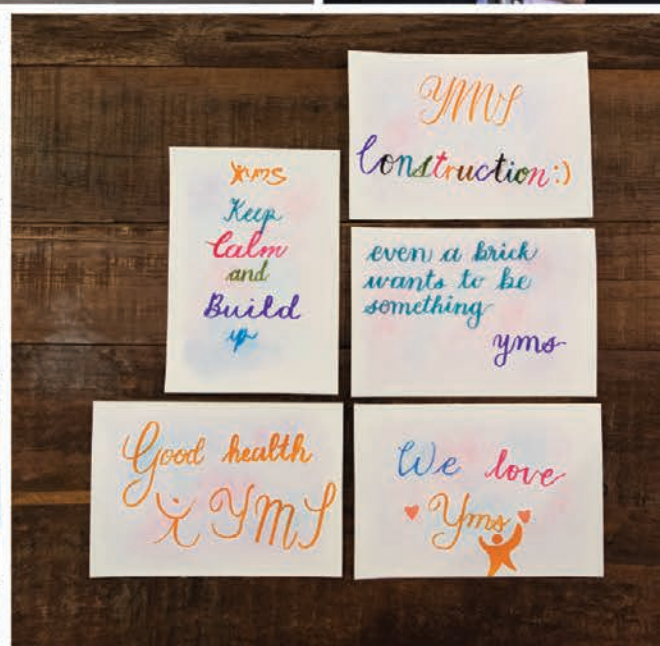 YMS
Construction:)
yms
Keep
Calm
and
Build
up
even a brick
wants to be
something
yms
Good health
YMS
We love
Yms